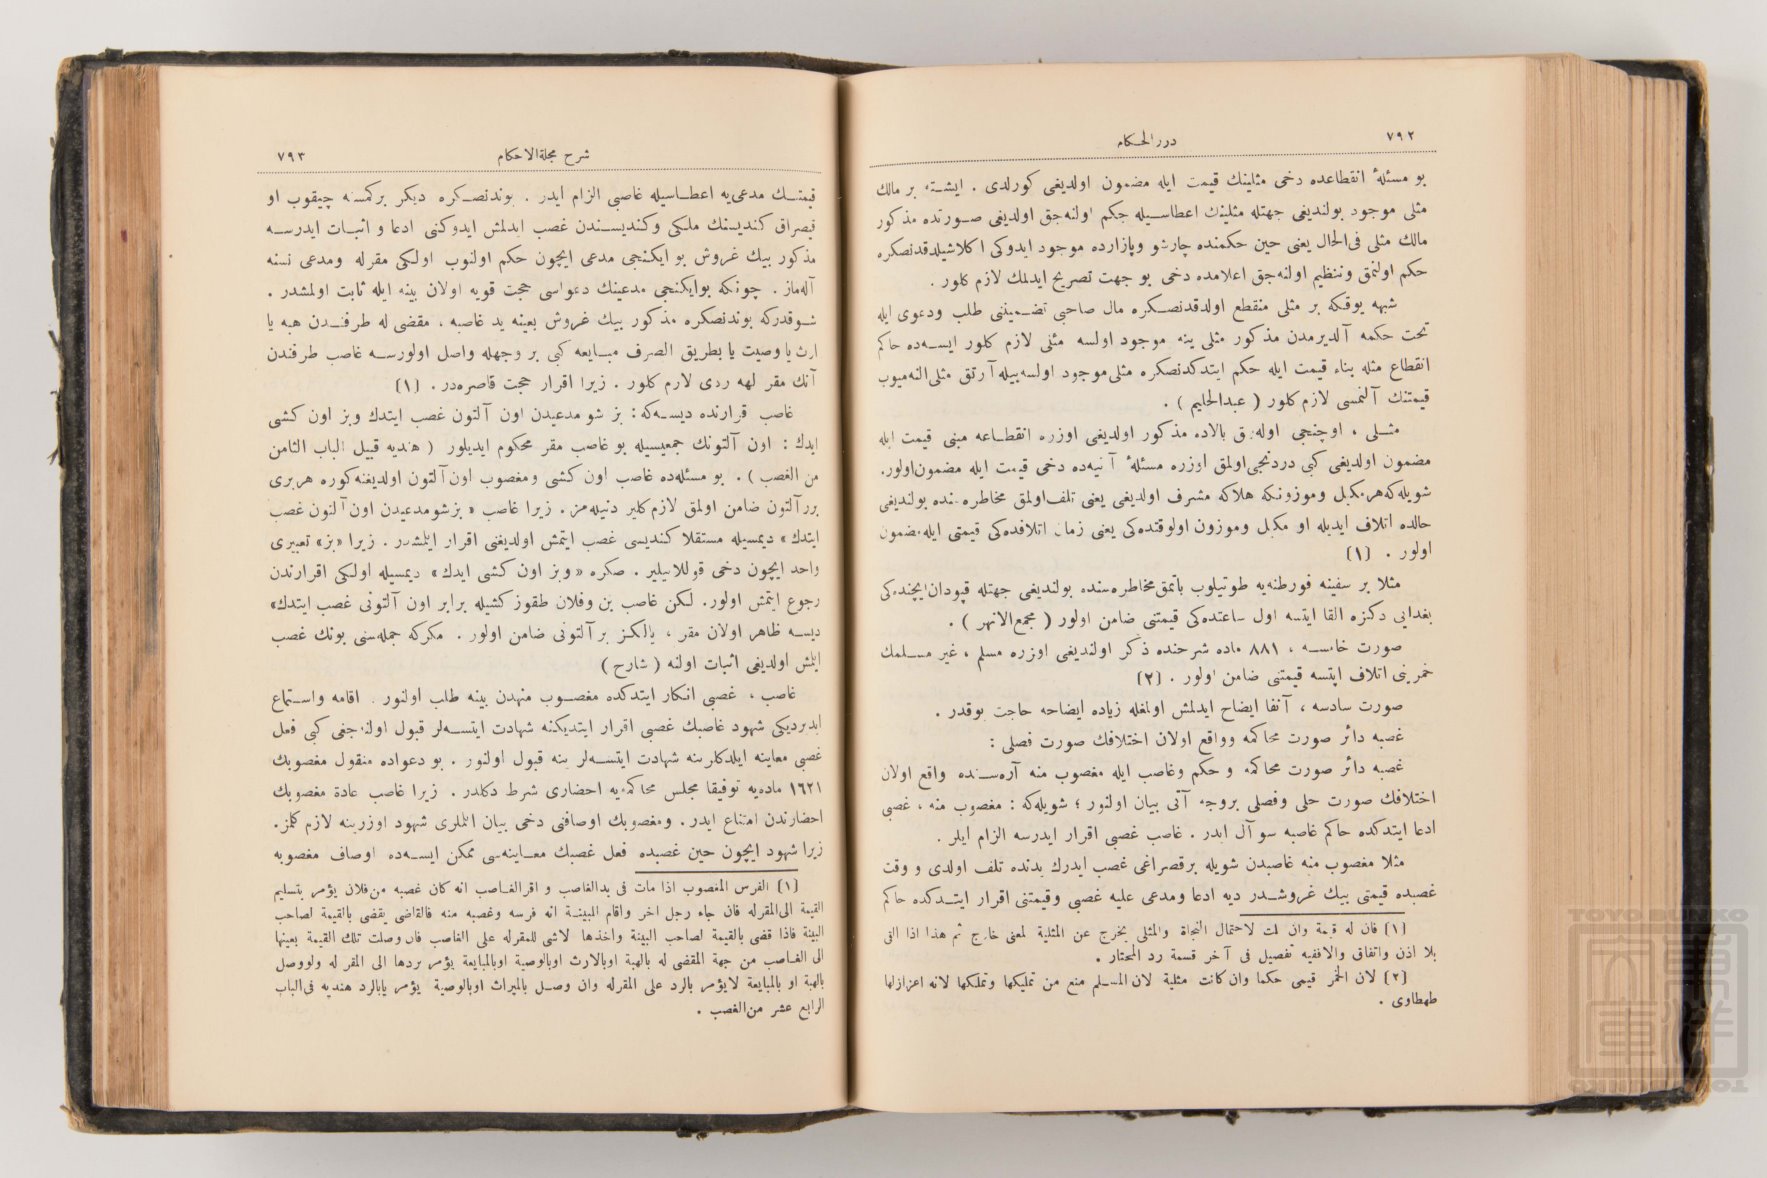 ٧٩٢
درر الحكام
بو مسئلهٔ انقطاعده دخی مثلینك قیمت ایله مضمون اولدیغی كورلدی . ایشته بر مالك
مثلی موجود بولندیغی جهتله مثلینك اعطاسیله حكم اولنه‌جق اولدیغی صورتده مذكور
مالك مثلی فی‌الحال یعنی حین حكمنده چارشو وپازارده موجود ایدوكی اكلاشیلدقدنصكره
حكم اولنمق وتنظیم اولنه‌جق اعلامده دخی بو جهت تصریح ایدلمك لازم كلور .
شبهه یوقكه بر مثلی منقطع اولدقدنصكره مال صاحبی تضمیننی طلب ودعوی ایله
تحت حكمه آلدیرمدن مذكور مثلی ینه موجود اولسه مثلی لازم كلور ایسه‌ده حاكم
انقطاع مثله بناء قیمت ایله حكم ایتدكدنصكره مثلی موجود اولسه بیله آرتق مثلی النه‌میوب
قیمتنك آلنمسی لازم كلور ( عبدالحلیم ) .
مثلی ، اوچنجی اوله‌رق بالاده مذكور اولدیغی اوزره انقطاعه مبنی قیمت ایله
مضمون اولدیغی كبی دردنجی اولمق اوزره مسئلهٔ آتیه‌ده دخی قیمت ایله مضمون اولور.
شویله‌كه هر مكیل وموزونكه هلاكه مشرف اولدیغی یعنی تلف اولمق مخاطره‌سنده بولندیغی
حالده اتلاف ایدیله او مكیل وموزون اولوقتده‌كی یعنی زمان اتلافده‌كی قیمتی ایله مضمون
اولور . (١)
مثلا بر سفینه فورطنه‌یه طوتیلوب باتمق مخاطره‌سنده بولندیغی جهتله قپودان ایچنده‌كی
بغدایی دكزه القا ایتسه اول ساعتده‌كی قیمتنی ضامن اولور ( مجمع‌الانهر ) .
صورت خامسه ، ٨٨١ ماده شرحنده ذكر اولندیغی اوزره مسلم ، غیر مسلمك
خمرینی اتلاف ایتسه قیمتنی ضامن اولور . (٢)
صورت سادسه ، آنفا ایضاح ایدلمش اولمغله زیاده ایضاحه حاجت یوقدر .
غصبه دائر صورت محاكمه وواقع اولان اختلافك صورت فصلی :
غصبه دائر صورت محاكمه و حكم وغاصب ایله مغصوب منه آره‌سنده واقع اولان
اختلافك صورت حلی وفصلی بروجه آتی بیان اولنور ؛ شویله‌كه : مغصوب منه ، غصبی
ادعا ایتدكده حاكم غاصبه سوآل ایدر . غاصب غصبی اقرار ایدرسه الزام ایلر .
مثلا مغصوب منه غاصبدن شویله برقصراغی غصب ایدرك یدنده تلف اولدی و وقت
غصبده قیمتی بیك غروشدر دیه ادعا ومدعی علیه غصبی وقیمتنی اقرار ایتدكده حاكم
(١) فان له قیمة وان قلت لاحتمال النجاة والمثلی یخرج عن المثلیة لمعنی خارج ثم هذا اذا القی
بلا اذن واتفاق والافقیه تفصیل فی آخر قسمة رد المحتار .
(٢) لان الخمر قیمی حكما وان كانت مثلیة لان المسلم منع من تملیكها وتملكها لانه اعزازلها
طحطاوی .
شرح مجلة‌الاحكام
٧٩٣
قیمتنك مدعی‌یه اعطاسیله غاصبی الزام ایدر . بوندنصكره دیكر بركمسنه چیقوب او
قیصراق كندیسنك ملكی وكندیسندن غصب ایدلمش ایدوكنی ادعا و اثبات ایدرسه
مذكور بیك غروش بو ایكنجی مدعی ایچون حكم اولنوب اولكی مقرله ومدعی نسنه
آله‌ماز . چونكه بوایكنجی مدعینك دعواسی حجت قویه اولان بینه ایله ثابت اولمشدر .
شوقدركه بوندنصكره مذكور بیك غروش بعینه ید غاصبه ، مقضی له طرفندن هبه یا
ارث یا وصیت یا بطریق الصرف مبایعه كبی بر وجهله واصل اولورسه غاصب طرفندن
آنك مقر لهه ردی لازم كلور . زیرا اقرار حجت قاصره‌در. (١)
غاصب قرارنده دیسه‌كه : بز شو مدعیدن اون آلتون غصب ایتدك وبز اون كشی
ایدك : اون آلتونك جمعیسیله بو غاصب مقر محكوم ایدیلور ( هندیه قبیل الباب الثامن
من الغصب ) . بو مسئله‌ده غاصب اون كشی ومغصوب اون آلتون اولدیغنه كوره هربری
بررآلتون ضامن اولمق لازم كلیر دنیله‌مز . زیرا غاصب « بزشو مدعیدن اون آلتون غصب
ایتدك » دیمسیله مستقلا كندیسی غصب ایتمش اولدیغنی اقرار ایلمشدر . زیرا «بز» تعبیری
واحد ایچون دخی قوللانیلیر . صكره « وبز اون كشی ایدك» دیمسیله اولكی اقرارندن
رجوع ایتمش اولور. لكن غاصب بن وفلان طقوز كشیله برابر اون آلتونی غصب ایتدك»
دیسه ظاهر اولان مقر ، یالكز بر آلتونی ضامن اولور . مكركه جمله‌سنی بونك غصب
ایتمش اولدیغی اثبات اولنه ( شارح )
غاصب ، غصبی انكار ایتدكده مغصوب منهدن بینه طلب اولنور . اقامه واستماع
ایدیردیكی شهود غاصبك غصبی اقرار ایتدیكنه شهادت ایتسه‌لر قبول اولنه‌جغی كبی فعل
غصبی معاینه ایلدكلرینه شهادت ایتسه‌لر ینه قبول اولنور . بو دعواده منقول مغصوبك
١٦٢١ ماده‌یه توفیقا مجلس محاكمه‌یه احضاری شرط دكلدر . زیرا غاصب عادة مغصوبك
احضارندن امتناع ایدر. ومغصوبك اوصافنی دخی بیان ایتملری شهود اوزرینه لازم كلمز.
زیرا شهود ایچون حین غصبده فعل غصبك معاینه‌سی ممكن ایسه‌ده اوصاف مغصوبه
(١) الفرس المغصوب اذا مات فی یدالغاصب و اقرالغاصب انه كان غصبه من‌فلان یؤمر بتسلیم
القیمة الی‌المقرله فان جاء رجل اخر واقام البینة انه فرسه وغصبه منه فالقاضی یقضی بالقیمة لصاحب
البینة فاذا قضی بالقیمة لصاحب البینة واخذها لاشی للمقرله علی الغاصب فان وصلت تلك القیمة بعینها
الی الغاصب من جهة المقضی له بالهبة اوبالارث اوبالوصیة اوبالمبایعة یؤمر بردها الی المقر له ولووصل
بالهبة او بالمبایعة لایؤمر بالرد علی المقرله وان وصل بالمیراث اوبالوصیة یؤمر بالرد هندیه فی‌الباب
الرابع عشر من‌الغصب .
TOYO BUNKO